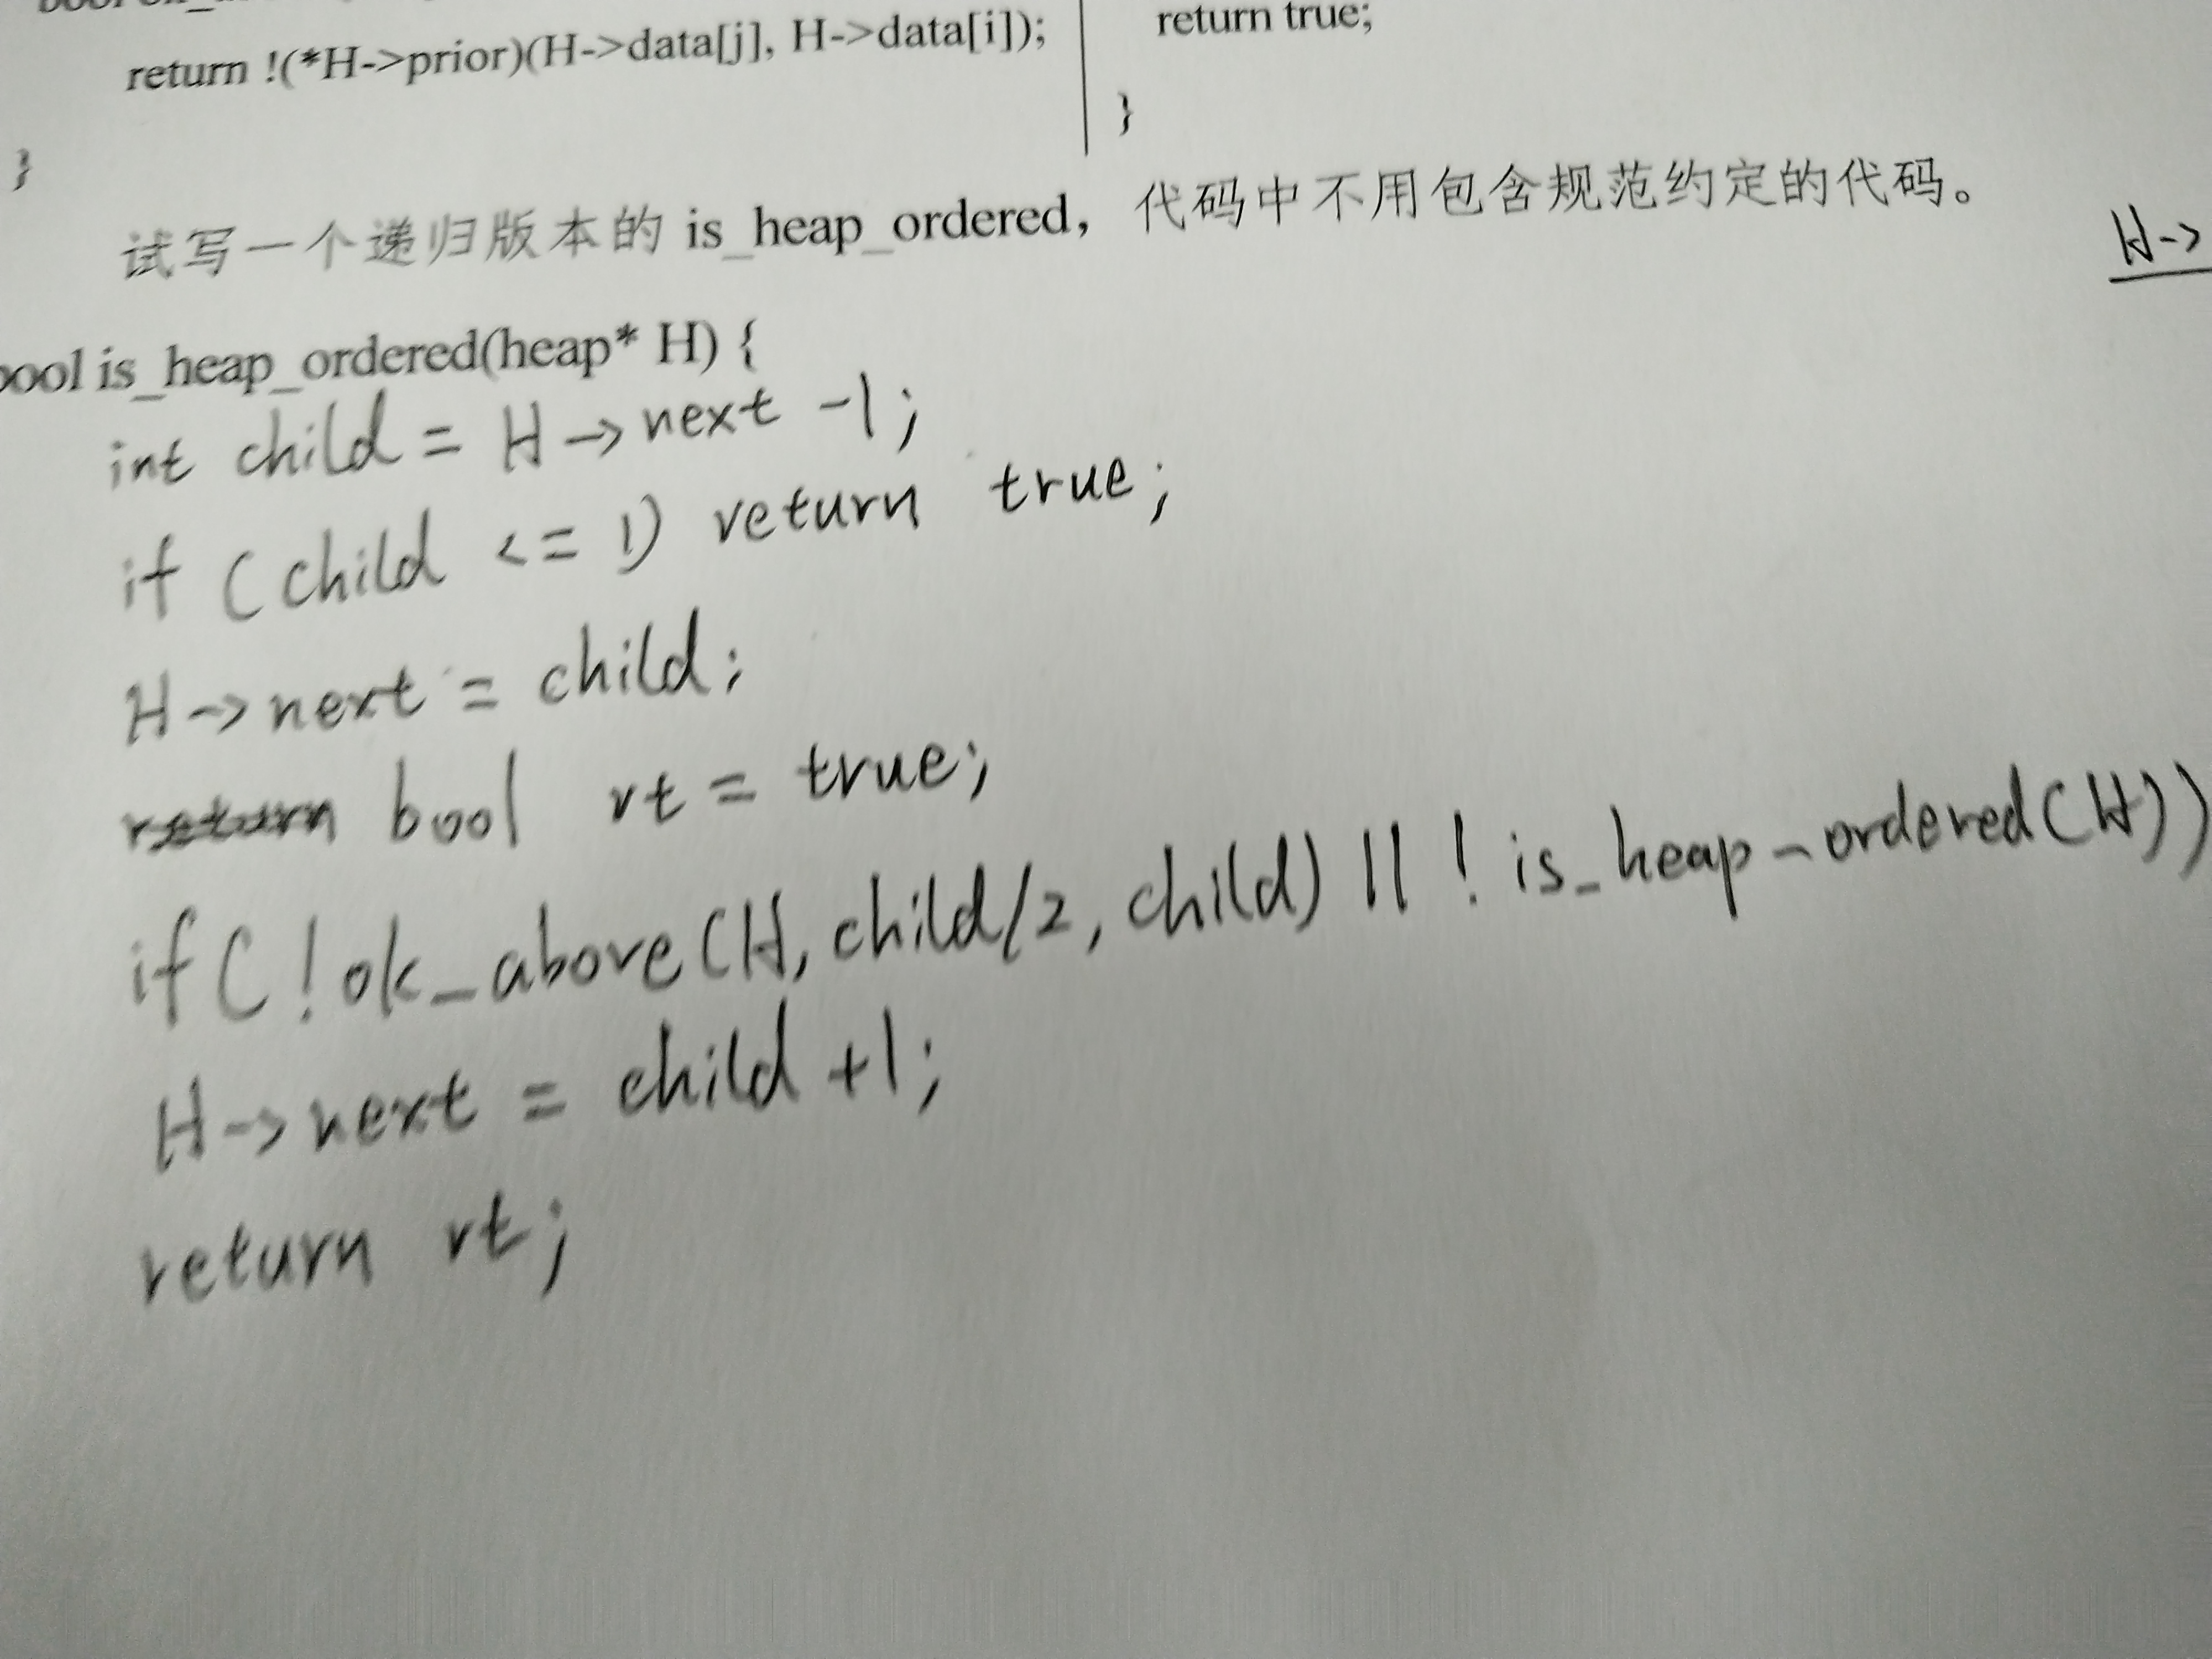 return !(*H->prior)(H->data[j], H->data[i]);
return true;
}
}
试写一个递归版本的 is_heap_ordered，代码中不用包含规范约定的代码。
H->
bool is_heap_ordered(heap* H) {
int child = H->next -1;
if (child <= 1) return true;
H->next = child;
return bool rt = true;
if (!ok_above(H, child/2, child) || ! is_heap_ordered(H))
H->next = child +1;
return rt;